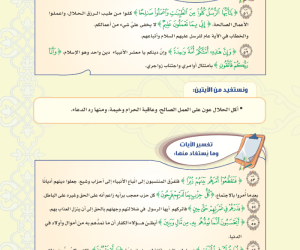 ﴿ يَا أَيُّهَا الرُّسُلُ كُلُوا مِنَ الطَّيِّبَاتِ وَاعْمَلُوا صَالِحًا ﴾ كلوا من طيب الرزق الحلال، واعملوا
الأعمال الصالحة. ﴿ إِنِّي بِمَا تَعْمَلُونَ عَلِيمٌ ﴾ لا يخفى علي شيء من أعمالكم.
والخطاب في الآية عام للرسل عليهم السلام وأتباعهم.
﴿ وَإِنَّ هَذِهِ أُمَّتُكُمْ أُمَّةً وَاحِدَةً ﴾ وإن دينكم يا معشر الأنبياء دين واحد وهو الإسلام، ﴿ وَأَنَا
رَبُّكُمْ فَاتَّقُونِ ﴾ بامتثال أوامري واجتناب زواجري.
ونستفيد من الآيتين:
• أكل الحلال عون على العمل الصالح، وعاقبة الحرام وخيمة، ومنها رد الدعاء.
تفسير الآيات
وما يُستفاد منها:
﴿ فَتَقَطَّعُوا أَمْرَهُمْ بَيْنَهُمْ زُبُرًا ﴾ فتفرق المنتسبون إلى اتباع الأنبياء إلى أحزاب وشيع، جعلوا دينهم أديانا
بعدما أمروا بالاجتماع. ﴿ كُلُّ حِزْبٍ بِمَا لَدَيْهِمْ فَرِحُونَ ﴾ كل حزب معجب برأيه زاعم أنه على الحق وغيره على الباطل.
﴿ فَذَرْهُمْ فِي غَمْرَتِهِمْ حَتَّى حِينٍ ﴾ فاتركهم أيها الرسول في ضلالتهم وجهلهم بالحق إلى أن ينزل العذاب بهم.
﴿ أَيَحْسَبُونَ أَنَّمَا نُمِدُّهُمْ بِهِ مِنْ مَالٍ وَبَنِينَ ﴾ أيظن هؤلاء الكفار أن ما نمدهم به من أموال وأولاد في
الدنيا